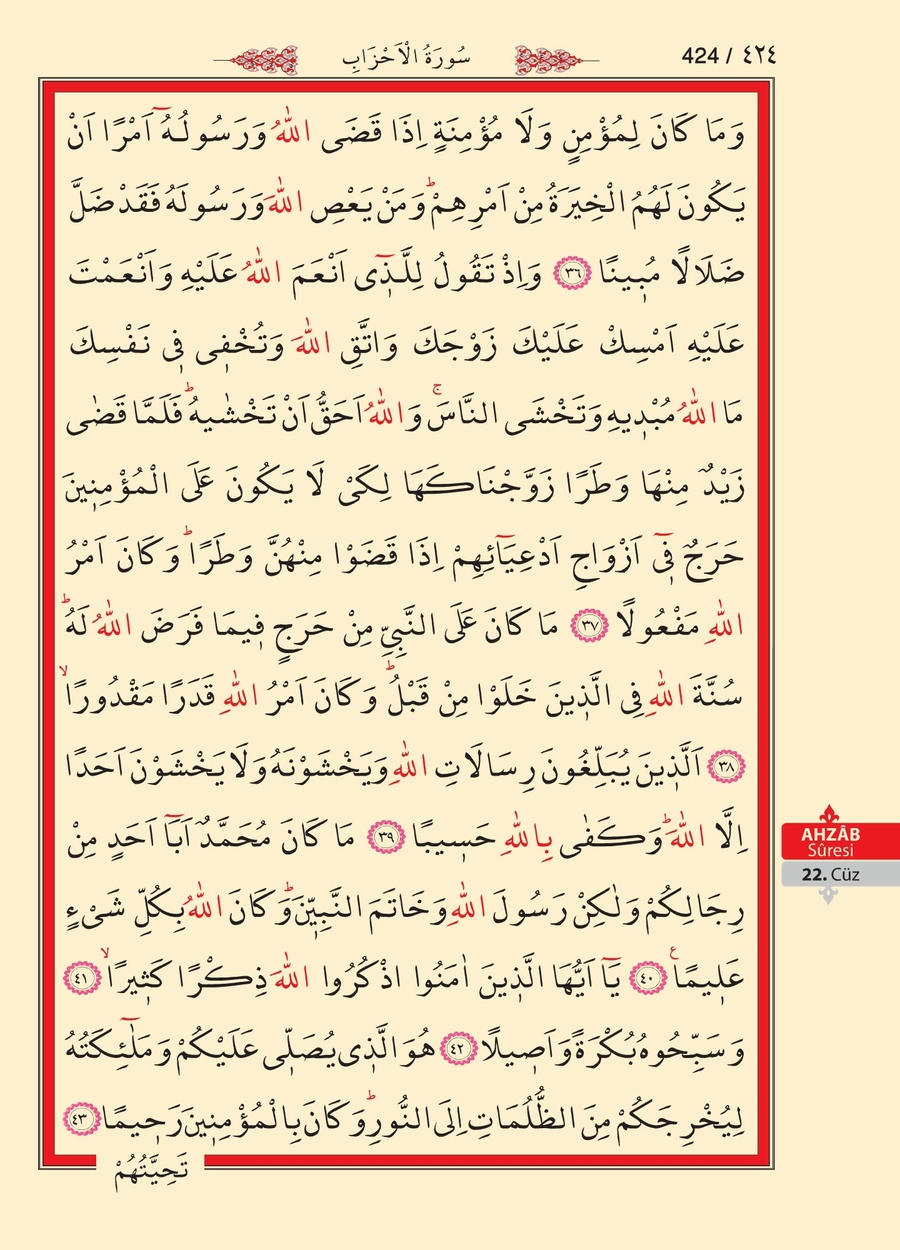 سُورَةُ الْاَحْزَابِ
424 / ٤٢٤
وَمَا كَانَ لِمُؤْمِنٍ وَلَا مُؤْمِنَةٍ اِذَا قَضَى اللّٰهُ وَرَسُولُهُٓ اَمْرًا اَنْ
يَكُونَ لَهُمُ الْخِيَرَةُ مِنْ اَمْرِهِمْۜ وَمَنْ يَعْصِ اللّٰهَ وَرَسُولَهُ فَقَدْ ضَلَّ
ضَلَالًا مُب۪ينًا ﴿٣٦﴾ وَاِذْ تَقُولُ لِلَّـذ۪ٓي اَنْعَمَ اللّٰهُ عَلَيْهِ وَاَنْعَمْتَ
عَلَيْهِ اَمْسِكْ عَلَيْكَ زَوْجَكَ وَاتَّقِ اللّٰهَ وَتُخْف۪ي ف۪ي نَفْسِكَ
مَا اللّٰهُ مُبْد۪يهِ وَتَخْشَى النَّاسَۚ وَاللّٰهُ اَحَقُّ اَنْ تَخْشٰيهُۜ فَلَمَّا قَضٰى
زَيْدٌ مِنْهَا وَطَرًا زَوَّجْنَاكَهَا لِكَيْ لَا يَكُونَ عَلَى الْمُؤْمِن۪ينَ
حَرَجٌ ف۪ٓي اَزْوَاجِ اَدْعِيَٓائِهِمْ اِذَا قَضَوْا مِنْهُنَّ وَطَرًاۜ وَكَانَ اَمْرُ
اللّٰهِ مَفْعُولًا ﴿٣٧﴾ مَا كَانَ عَلَى النَّبِيِّ مِنْ حَرَجٍ ف۪يمَا فَرَضَ اللّٰهُ لَهُۜ
سُنَّةَ اللّٰهِ فِي الَّذ۪ينَ خَلَوْا مِنْ قَبْلُۜ وَكَانَ اَمْرُ اللّٰهِ قَدَرًا مَقْدُورًاۙ
﴿٣٨﴾ اَلَّذ۪ينَ يُبَلِّغُونَ رِسَالَاتِ اللّٰهِ وَيَخْشَوْنَهُ وَلَا يَخْشَوْنَ اَحَدًا
اِلَّا اللّٰهَۜ وَكَفٰى بِاللّٰهِ حَس۪يبًا ﴿٣٩﴾ مَا كَانَ مُحَمَّدٌ اَبَٓا اَحَدٍ مِنْ
رِجَالِكُمْ وَلٰكِنْ رَسُولَ اللّٰهِ وَخَاتَمَ النَّبِيّ۪نَۜ وَكَانَ اللّٰهُ بِكُلِّ شَيْءٍ
عَل۪يمًا۟ ﴿٤٠﴾ يَٓا اَيُّهَا الَّذ۪ينَ اٰمَنُوا اذْكُرُوا اللّٰهَ ذِكْرًا كَث۪يرًاۙ ﴿٤١﴾
وَسَبِّحُوهُ بُكْرَةً وَاَص۪يلًا ﴿٤٢﴾ هُوَ الَّذ۪ي يُصَلّ۪ي عَلَيْكُمْ وَمَلٰٓئِكَتُهُ
لِيُخْرِجَكُمْ مِنَ الظُّلُمَاتِ اِلَى النُّورِۜ وَكَانَ بِالْمُؤْمِن۪ينَ رَح۪يمًا ﴿٤٣﴾
تَحِيَّتُهُمْ
AHZÂB
Sûresi
22. Cüz